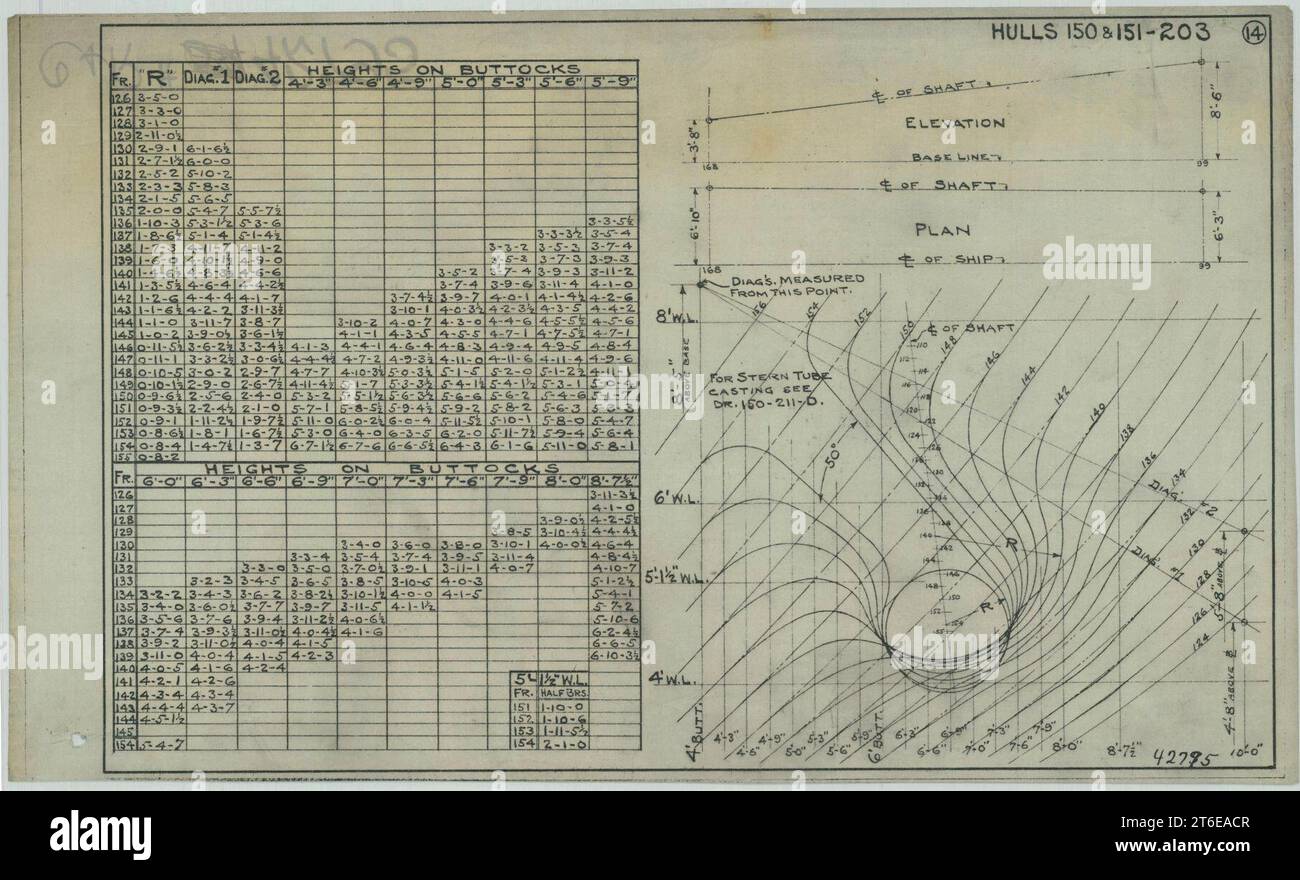 HULLS 150 & 151-203 14
HEIGHTS ON BUTTOCKS
FR. "R" DIAG.#1 DIAG.#2 4'-3" 4'-6" 4'-9" 5'-0" 5'-3" 5'-6" 5'-9"
126 3-5-0
127 3-3-0
128 3-1-0
129 2-11-0½
130 2-9-1 6-1-6½
131 2-7-1½ 6-0-0
132 2-5-2 5-10-2
133 2-3-3 5-8-3
134 2-1-5 5-6-5
135 2-0-0 5-4-7 5-5-7½
136 1-10-3 5-3-1½ 5-3-6 3-3-5½
137 1-8-6½ 5-1-4 5-1-4½ 3-3-3½ 3-5-4
138 4-11-2 3-3-2 3-5-3 3-7-4
139 4-9-0 3-7-3 3-9-3
140 3-5-2 3-9-3 3-11-2
141 1-3-5½ 4-6-4 3-7-4 3-9-6 3-11-4 4-1-0
142 1-2-6 4-4-4 4-1-7 3-7-4½ 3-9-7 4-0-1 4-1-4½ 4-2-6
143 1-1-6½ 4-2-2 3-11-3½ 3-10-1 4-0-3½ 4-2-3½ 4-3-5 4-4-2
144 1-1-0 3-11-7 3-8-7 3-10-2 4-0-7 4-3-0 4-4-6 4-5-5½ 4-5-6
145 1-0-2 3-9-0½ 3-6-1½ 4-1-1 4-3-5 4-5-5 4-7-1 4-7-5½ 4-7-1
146 0-11-5½ 3-6-2½ 3-3-4½ 4-1-3 4-4-1 4-6-4 4-8-3 4-9-4 4-9-5 4-8-4
147 0-11-1 3-3-2½ 3-0-6½ 4-4-4½ 4-7-2 4-9-3½ 4-11-0 4-11-6 4-11-4 4-9-6
148 0-10-5 3-0-2 2-9-7 4-7-7 4-10-3½ 5-0-3½ 5-1-5 5-2-0 5-1-2½
149 0-10-1½ 2-9-0 2-6-7½ 4-11-4½ 5-3-3½ 5-4-1½ 5-4-1½ 5-3-1
150 0-9-6½ 2-5-6 2-4-0 5-3-2 5-6-3½ 5-6-6 5-6-2 5-4-6
151 0-9-3½ 2-2-4½ 2-1-0 5-7-1 5-8-5½ 5-9-4½ 5-9-2 5-8-2 5-6-3
152 0-9-1 1-11-2½ 1-9-7½ 5-11-0 6-0-2½ 6-0-4 5-11-5½ 5-10-1 5-8-0 5-4-7
153 0-8-6½ 1-8-1 1-6-7½ 5-3-0 6-4-0 6-3-5 6-2-0 5-11-7½ 5-9-4 5-6-4
154 0-8-4 1-4-7½ 1-3-7 6-7-1½ 6-7-6 6-6-5½ 6-4-3 6-1-6 5-11-0 5-8-1
155 0-8-2
HEIGHTS ON BUTTOCKS
FR. 6'-0" 6'-3" 6'-6" 6'-9" 7'-0" 7'-3" 7'-6" 7'-9" 8'-0" 8'-7½"
126 3-11-3½
127 4-1-0
128 3-9-0½ 4-2-5½
129 3-8-5 3-10-4½ 4-4-4½
130 3-4-0 3-6-0 3-8-0 3-10-1 4-0-0½ 4-6-4
131 3-3-4 3-5-4 3-7-4 3-9-5 3-11-4 4-8-4½
132 3-3-0 3-5-0 3-7-0½ 3-9-1 3-11-1 4-0-7 4-10-7
133 3-2-3 3-4-5 3-6-5 3-8-5 3-10-5 4-0-3 5-1-2½
134 3-2-2 3-4-3 3-6-2 3-8-2½ 3-10-1½ 4-0-0 4-1-5 5-4-1
135 3-4-0 3-6-0½ 3-7-7 3-9-7 3-11-5 4-1-1½ 5-7-2
136 3-5-6 3-7-6 3-9-4 3-11-2½ 4-0-6½ 5-10-6
137 3-7-4 3-9-3½ 3-11-0½ 4-0-4½ 4-1-6 6-2-4½
138 3-9-2 3-11-0½ 4-0-4 4-1-5 6-6-5
139 3-11-0 4-0-4 4-1-5 4-2-3 6-10-3½
140 4-0-5 4-1-6 4-2-4
141 4-2-1 4-2-6
142 4-3-4 4-3-4
143 4-4-4 4-3-7
144 4-5-1½
145
154 5-4-7
5'-1½" W.L.
FR. HALF BRS.
151 1-10-0
152 1-10-6
153 1-11-5½
154 2-1-0
℄ OF SHAFT
ELEVATION
3'-8"
8'-6"
BASE LINE
168 99
℄ OF SHAFT
6'-10"
PLAN
6'-3"
℄ OF SHIP
168 99
DIAG'S. MEASURED
FROM THIS POINT.
8' W.L.
ABOVE BASE
156 154 152 150 148 146 144 142 140 138 136 134 132 130 128 126 124
℄ OF SHAFT
FOR STERN TUBE
CASTING SEE
DR. 150-211-D.
50°
6' W.L.
DIAG. #2
DIAG. #1
R
R
5'-1½" W.L.
4' W.L.
5'-8" ABOVE ℄
4'-8" ABOVE ℄
4' BUTT. 4'-3" 4'-6" 4'-9" 5'-0" 5'-3" 5'-6" 5'-9" 6' BUTT. 6'-3" 6'-6" 6'-9" 7'-0" 7'-3" 7'-6" 7'-9" 8'-0" 8'-7½" 10'-0"
42795
alamy
Image ID: 2T6EACR
www.alamy.com